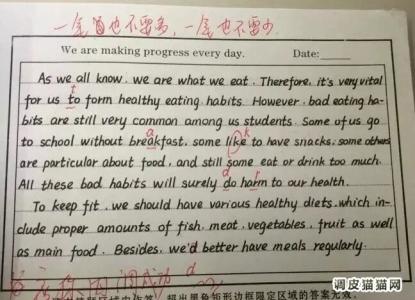 一笔画也不要多，一笔也不要少
We are making progress every day. Date:
As we all know, we are what we eat. Therefore, it's very vital
t
for us to form healthy eating habits. However, bad eating ha-
bits are still very common among us students. Some of us go
a k
to school without breakfast, some like to have snacks, some others
are particular about food, and still some eat or drink too much.
d r
All these bad habits will surely do harm to our health.
To keep fit, we should have various healthy diets, which in-
clude proper amounts of fish, meat, vegetables, fruit as well
as main food. Besides, we'd better have meals regularly.
d
超出黑色矩形边框限定区域的答案无效
调皮猫猫网